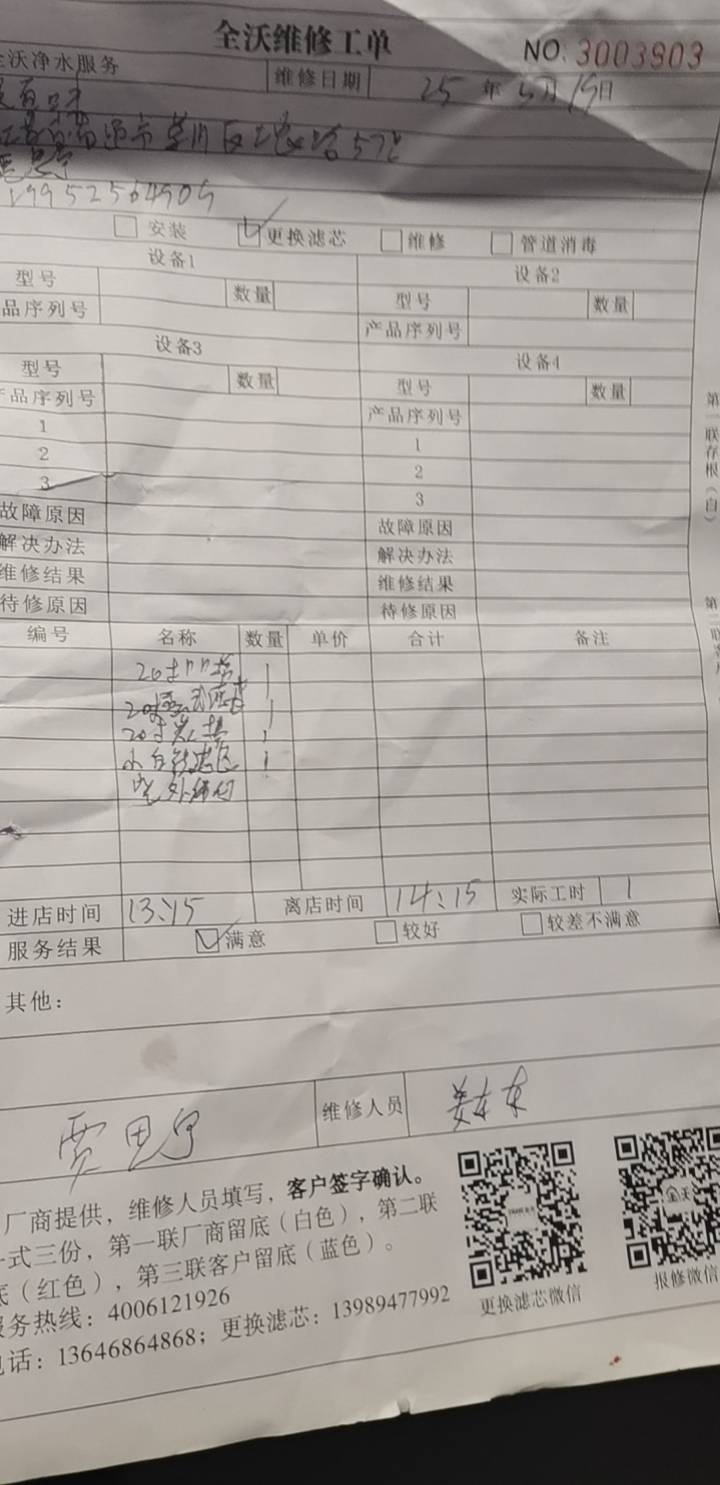 全沃维修工单
NO. 3003903
全沃净水服务 维修日期 25 年 5月 19日
19952564909
安装 更换滤芯 维修 管道消毒
设备1 设备2
型号 数量 型号 数量
品序列号 产品序列号
设备3 设备4
型号 数量 型号 数量
产品序列号 产品序列号
1 1
2 2
3 3
故障原因 故障原因
解决办法 解决办法
维修结果 维修结果
待修原因 待修原因
编号 名称 数量 单价 合计 备注
20寸 1
20寸 1
20寸炭 1
1
进店时间 13:15 离店时间 14:15 实际工时 1
服务结果 满意 较好 较差不满意
其他：
贾思宁 维修人员 姜东东
厂商提供，维修人员填写，客户签字确认。
一式三份，第一联厂商留底（白色），第二联
底（红色），第三联客户留底（蓝色）。
服务热线：4006121926
电话：13646864868；更换滤芯：13989477992
更换滤芯微信
报修微信
第一联存根（白）
第二联